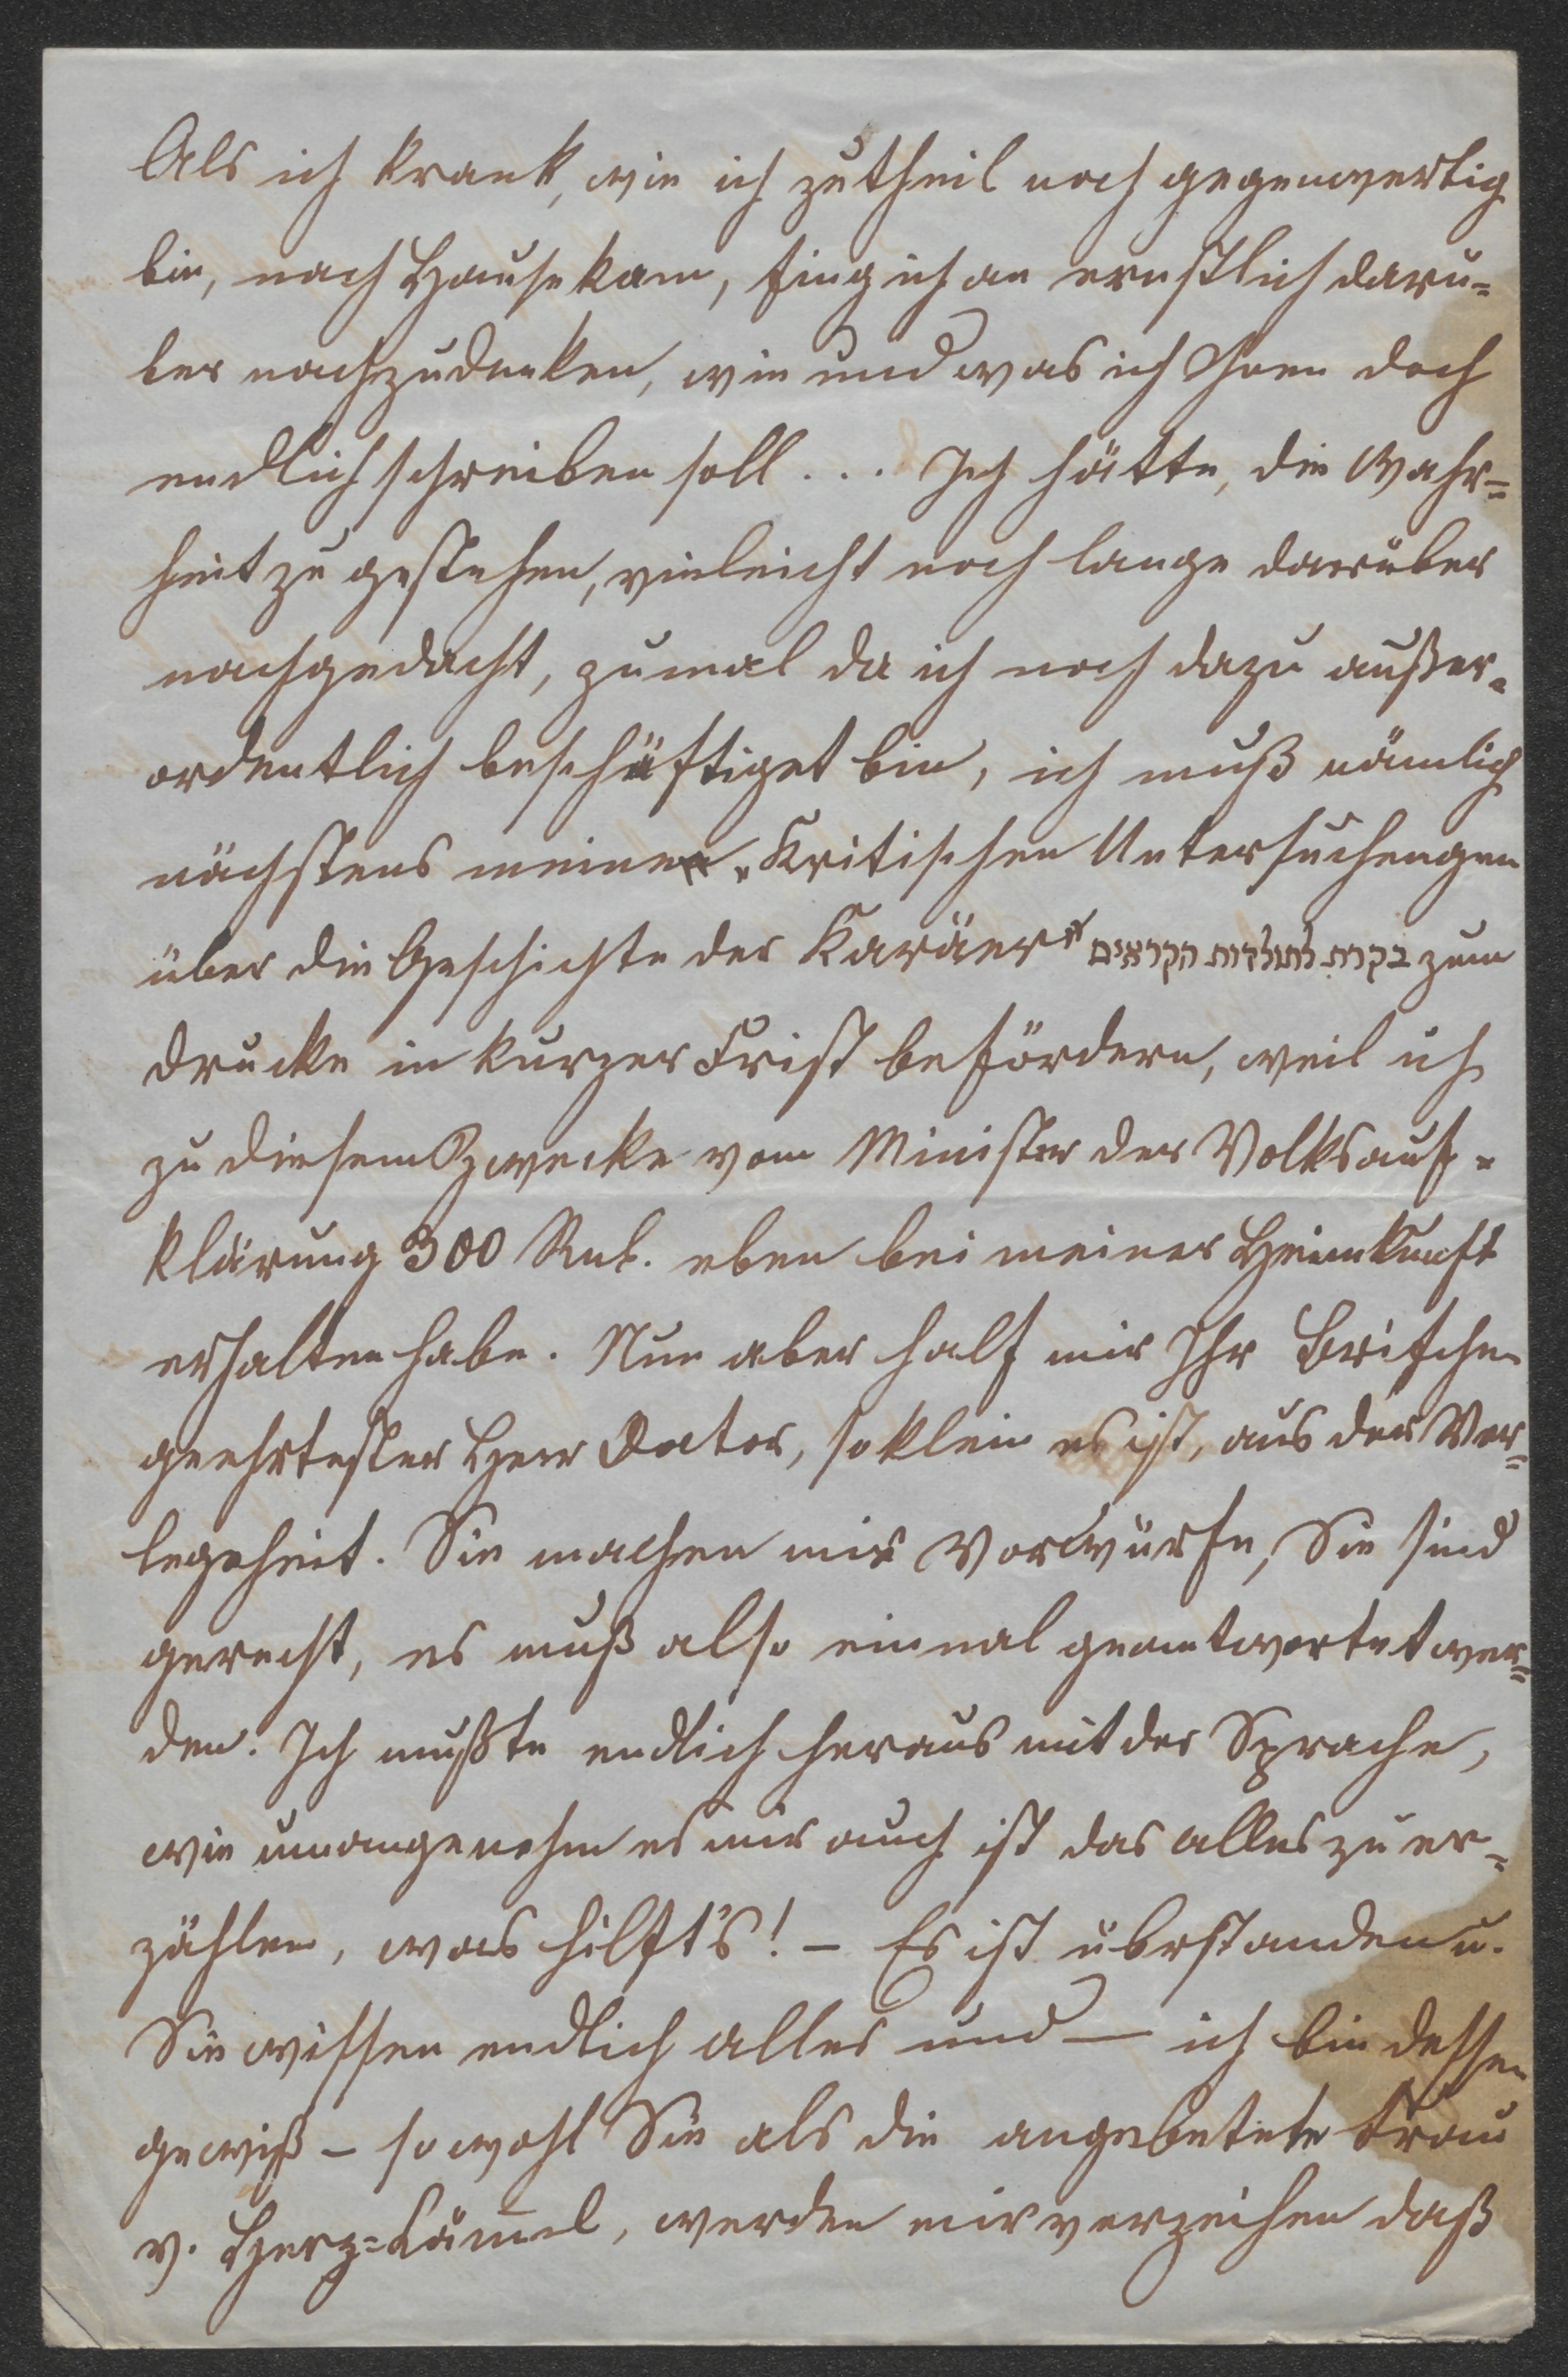 Als ich krank, wie ich zutheil noch gegenwertig
bin, nach Hause kam, fing ich an ernstlich daru=
ber nachzudenken, wie und was ich Ihnen doch
endlich schreiben soll . . . Ich hätte, die Wahr=
heit zu gestehen, vieleicht noch lange darüber
nachgedacht, zumal da ich noch dazu außer=
ordentlich beschäftiget bin, ich muß nämlich
nächstens meine „Kritischen Untersuchungen
über die Geschichte der Karäer“ בקרת לתולדות הקראים zum
Drucke in kurzer Frist befördern, weil ich
zu diesem Zwecke vom Minister der Volksauf=
klärung 300 Rub. eben bei meiner Heimkunft
erhalten habe. Nun aber half mir Ihr Brifchen
geehrtester Herr Doctor, so klein es ist, aus der Ver=
legeheit. Sie machen mir Vorwürfe, Sie sind
gerecht, es muß also einmal geantwortet wer=
den. Ich mußte endlich heraus mit der Sprache,
wie unangenehm es mir auch ist das alles zu er=
zählen, was hilft's! – Es ist überstanden u.
Sie wissen endlich alles und — ich bin dessen
gewiß – sowohl Sie als die angebetete Frau
v. Herz=Lämel, werden mir verzeihen daß